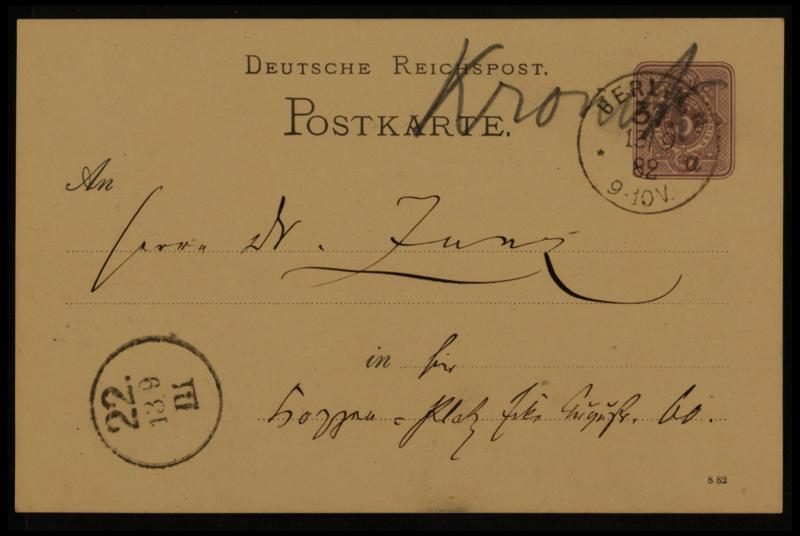 Kroner
DEUTSCHE REICHSPOST.
POSTKARTE.
BERLIN
13/9
82 a
9-10V.
An
Herrn Dr. Zunz
in hier
Koppen = Platz Ecke Auguststr. 60.
22.
13.9
III
8 82